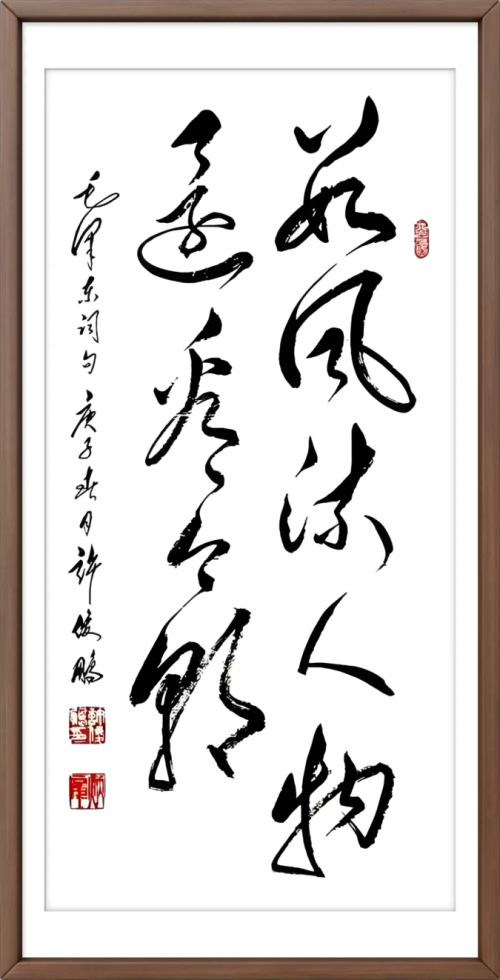 数风流人物
还看今朝
毛泽东词句 庚子春月 许俊鹏